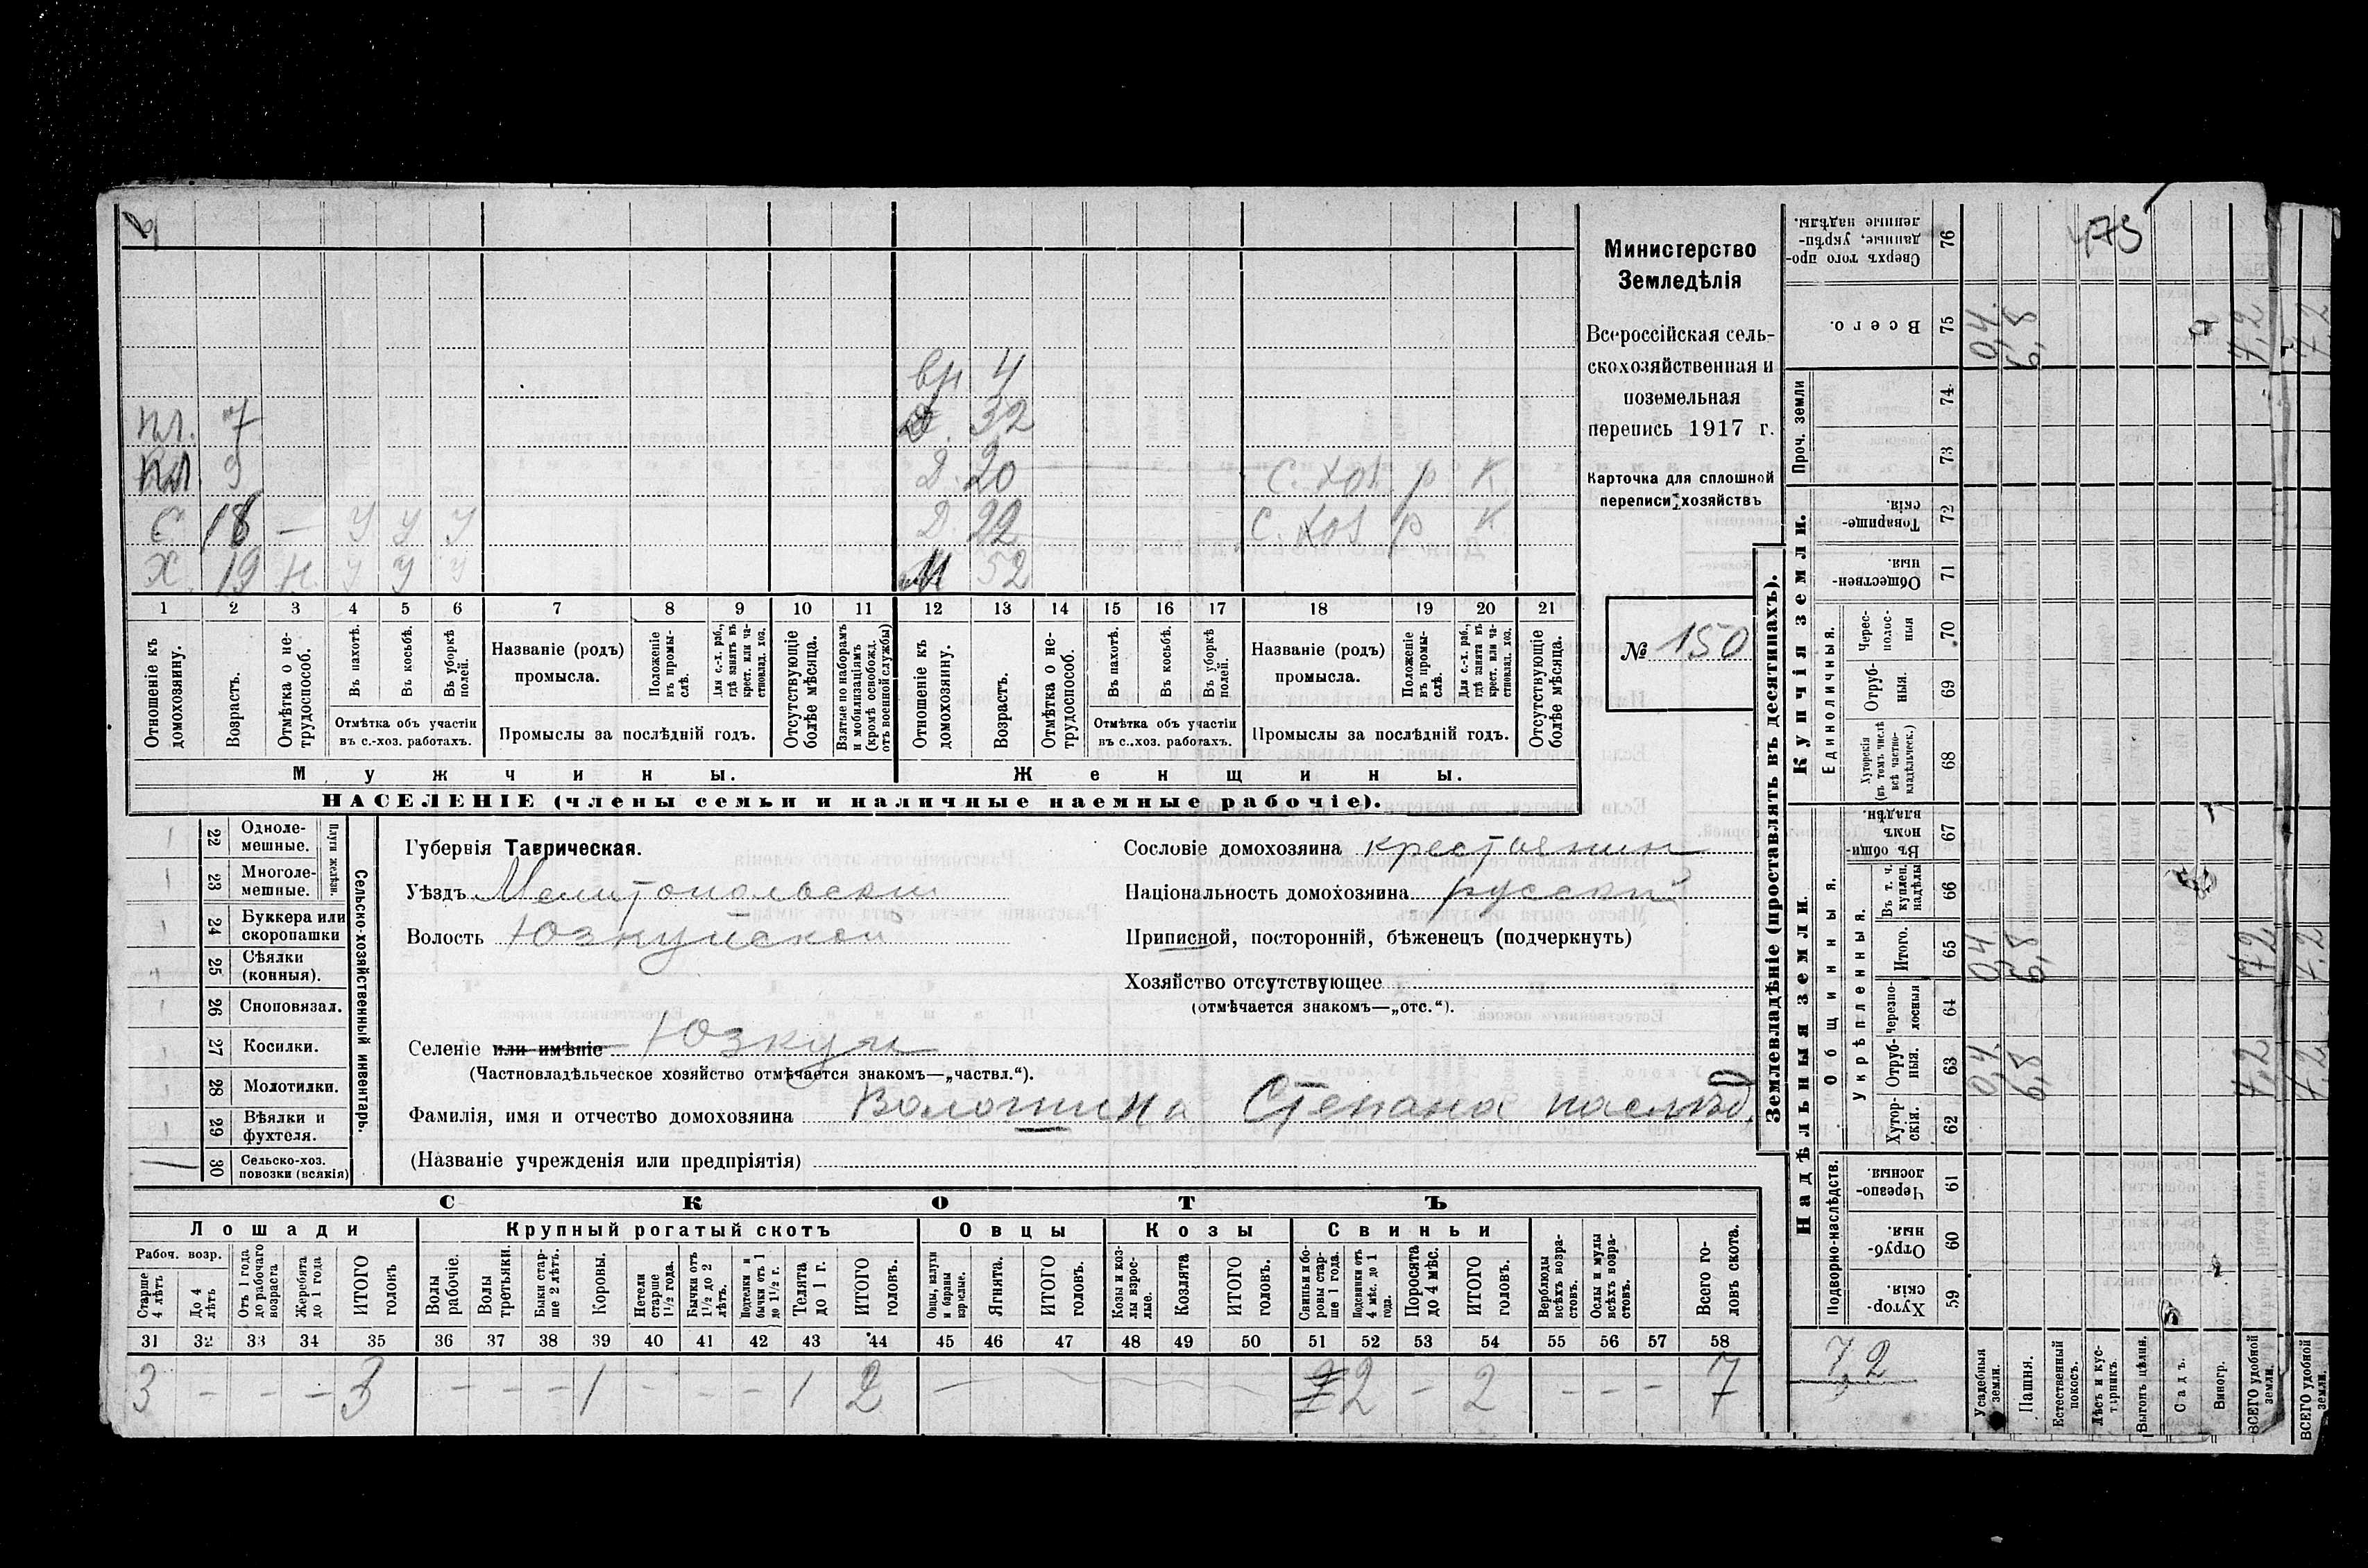 473
вн 4
пл. 7 д. 32
пл 9 Д. 20 С. хоз. р К
С 18 — У У У Д. 22 С. хоз р К
Х. 19 Н. У У У М 52
1 2 3 4 5 6 7 8 9 10 11 12 13 14 15 16 17 18 19 20 21
Отношеніе къ домохозяину.
Возрастъ.
Отмѣтка о не-трудоспособ.
Въ пахотѣ.
Въ косьбѣ.
Въ уборкѣ полей.
Отмѣтка объ участіи въ с.-хоз. работахъ.
Названіе (родъ) промысла.
Положеніе въ промы-слѣ.
Для с.-х. раб., гдѣ занятъ въ крест. или ча-стновлад. хоз.
Промыслы за послѣдній годъ.
Отсутствующіе болѣе мѣсяца.
Взятые по наборамъ и мобилизаціямъ (кромѣ освобожд. отъ военной службы)
Отношеніе къ домохозяину.
Возрастъ.
Отмѣтка о не-трудоспособ.
Въ пахотѣ.
Въ косьбѣ.
Въ уборкѣ полей.
Отмѣтка объ участіи въ с.-хоз. работахъ.
Названіе (родъ) промысла.
Положеніе въ промы-слѣ.
Для с.-х. раб., гдѣ занята въ крест. или ча-стновлад. хоз.
Промыслы за послѣдній годъ.
Отсутствующіе болѣе мѣсяца.
Мужчины. Женщины.
НАСЕЛЕНІЕ (члены семьи и наличные наемные рабочіе).
Министерство
Земледѣлія
Всероссійская сель-
скохозяйственная и
поземельная
перепись 1917 г.
Карточка для сплошной
переписи хозяйствъ
№ 150
22 Одноле-мешные.
23 Многоле-мешные.
Плуги желѣзн.
24 Буккера или скоропашки
25 Сѣялки (конныя).
26 Сноповязал.
27 Косилки.
28 Молотилки.
29 Вѣялки и фухтеля.
30 Сельско-хоз. повозки (всякія) 1
Сельско-хозяйственный инвентарь.
Губернія Таврическая.
Уѣздъ Мелитопольскій
Волость Юзкуйской
Селеніе или имѣніе Юзкуи
(Частновладѣльческое хозяйство отмѣчается знакомъ—„частвл.“).
Фамилія, имя и отчество домохозяина Волошина Степана наслѣд.
(Названіе учрежденія или предпріятія)
Сословіе домохозяина крестьянин
Національность домохозяина русскій
Приписной, посторонній, бѣженецъ (подчеркнуть)
Хозяйство отсутствующее
(отмѣчается знакомъ—„отс.“).
СКОТЪ
Лошади Крупный рогатый скотъ Овцы Козы Свиньи
Рабоч. возр.
Старше 4 лѣтъ
До 4 лѣтъ
Отъ 1 года до рабочаго возраста
Жеребята до 1 года
ИТОГО головъ
Волы рабочіе.
Волы третьяки.
Быки стар-ше 2 лѣтъ.
Коровы.
Нетели старше 1½ года.
Бычки отъ 1½ до 2 лѣтъ.
Подтелки и бычки отъ 1 до 1½ г.
Телята до 1 г.
ИТОГО головъ.
Овцы, валухи и бараны взрослые.
Ягнята.
ИТОГО головъ.
Козы и коз-лы взрос-лые.
Козлята
ИТОГО головъ.
Свиньи и бо-ровы стар-ше 1 года.
Подсвинки отъ 4 мѣс. до 1 года.
Поросята до 4 мѣс.
ИТОГО головъ.
Верблюды всѣхъ возра-стовъ.
Ослы и мулы всѣхъ возра-стовъ.
Всего го-ловъ скота.
31 32 33 34 35 36 37 38 39 40 41 42 43 44 45 46 47 48 49 50 51 52 53 54 55 56 57 58
3 – – – 3 – – – 1 – – – 1 2 — 2 – 2 – – – 7
Землевладѣніе (проставлять въ десятинахъ).
Надѣльныя земли. Купчія земли. Проч. земли
Подворно-наслѣдств.
Общинныя.
Укрѣпленныя.
Единоличныя.
Хутор-скія. 59
Отруб-ныя. 60
Черезпо-лосныя 61
Хутор-скія. 62
Отруб-ныя. 63
Черезпо-лосныя 64
Итого. 65
Въ т. ч. куплен. надѣлы 66
Въ общин-номъ владѣн. 67
Хуторскія (въ томъ числѣ всѣ частно-владѣльческ.) 68
Отруб-ныя. 69
Черес-полос-ныя 70
Обществен-ныя. 71
Товарище-скія. 72
73
74
Всего. 75
Сверхъ того про-данные, укрѣп-ленные надѣлы. 76
7,2
Усадебныя земли. 0,4 0,4 0,4
Пашня. 6,8 6,8 6,8
Естественный покосъ.
Лѣсъ и кус-тарникъ.
Выгонъ цѣлин.
Садъ.
Виногр.
ВСЕГО удобной земли. 7,2 7,2 7,2
ВСЕГО удобной земли. 7,2 7,2 7,2